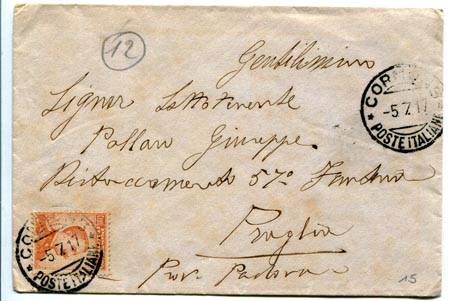 12
Gentilissimo
Signor Sottotenente
Pallaro Giuseppe
Distaccamento 57º Fanteria
Praglia
Prov. Padova
-5.7.17
POSTE ITALIANE
-5.7.17
POSTE ITALIANE
15